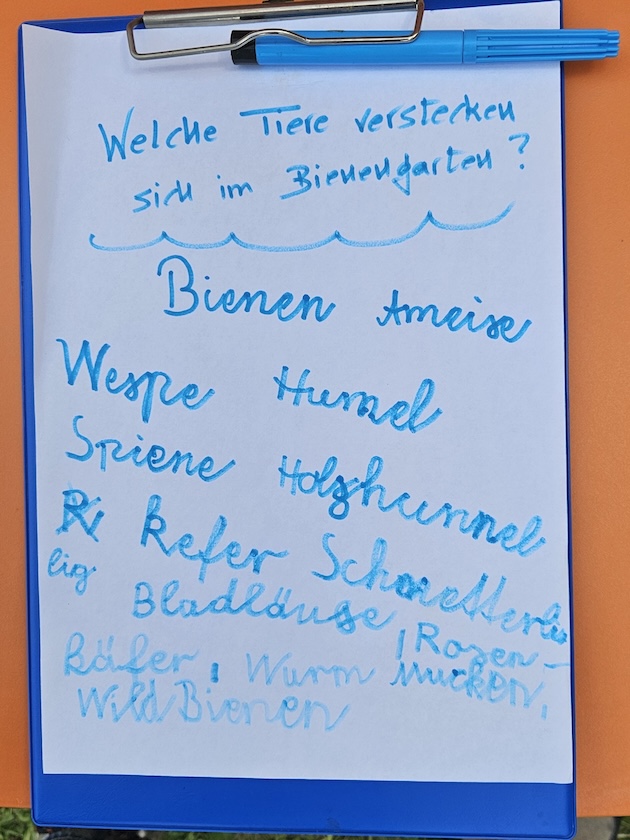 Welche Tiere verstecken
sich im Bienengarten?
Bienen Ameise
Wespe Humel
Spiene Holzhunnel
Kefer Schmetterlin
lig
Bladläuse, Rosen-
käfer, Wurm Mucken,
Wild Bienen